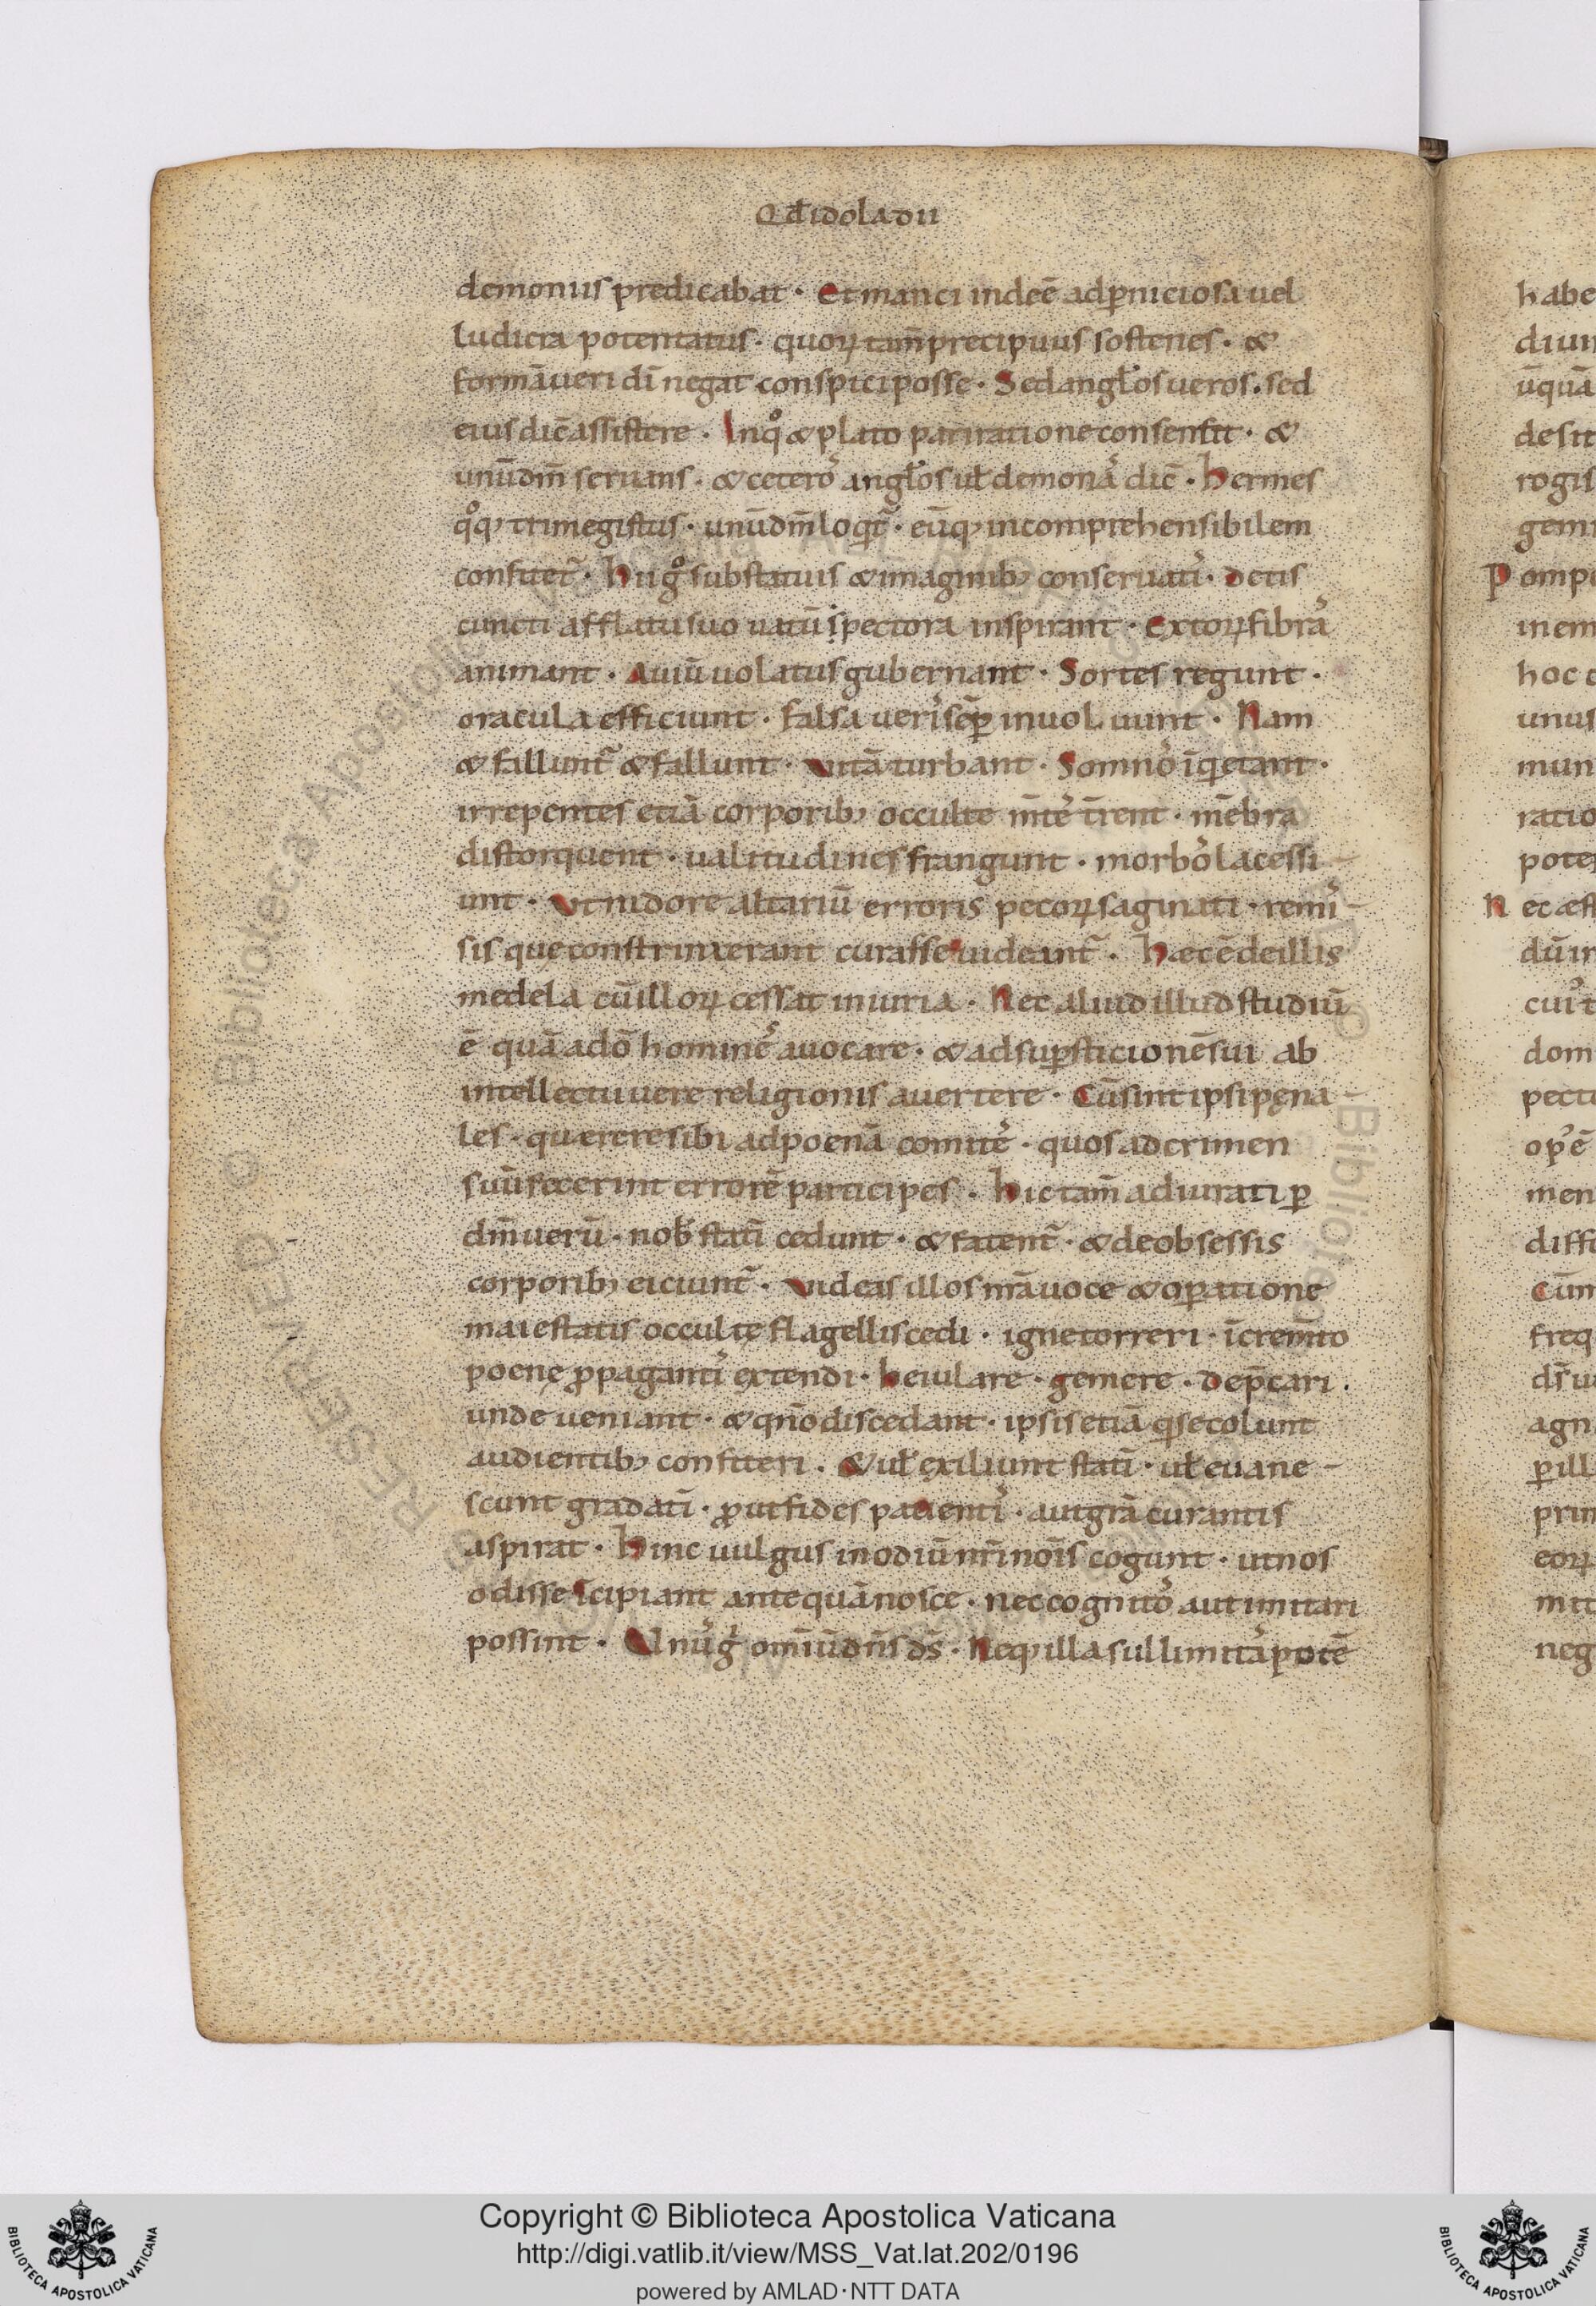 Qd̄ idola dii
demoniis predicabat · Et manci inde ē ad p̄niciosa uel
ludicra potentatus · quoꝝ tam̄ precipuus sostenes · &
formā ueri dī negat conspici posse · Sed angl̄os ueros · sed
eius dic̄ assistere · In q̊ & plato pari ratione consentit · &
unū dm̄ seruans · & cetero᷒ angl̄os ul̄ demona᷒ dic̄ · Hermes
q̊q; trimegistus · unū dm̄ loq̄t᷑ · eūq; incomprehensibilem
confitet᷑ · Hii g̊ sub statuis & imaginib; conseruati᷒ · Detis
cuncti afflatu suo uatū spectora inspirant · Extoꝝ fibra᷒
animant · Auiū uolatus gubernant · Sortes regunt ·
oracula efficiunt · falsa ueri᷒ sēp̄ inuoluunt · Nam
& fallunt᷑ & fallunt · Vitā turbant · Somno᷒ īq̄etant ·
irrepentes etiā corporib; occulte m̄te᷒ t̄rent · mēbra
distorquent · ualitudines frangunt · morbo᷒ lacessi-
unt · Vt nidore altariū erroris pecoꝝ saginati · remi᷒-
sis que constrinxerant curasse uideant᷑ · Hæc ē de illis
medela cū illoꝝ cessat iniuria · Nec aliud illud studiū
ē quā a dō homine᷒ auocare · & ad sup̄sticionē sui ab
intellectu uere religionis auertere · Cū sint ipsi pęna-
les · querere sibi ad poenā comite᷒ · quos ad crimen
suū fecerint errorē participes · Hic tam̄ adiurati p̄
dm̄ uerū · nob̄ statī cedunt · & fatent᷑ · & de obsessis
corporib; eiciunt᷑ · Videas illos n̄rā uoce & op̄ratione
maiestatis occulte flagellis cedi · igne torreri · īcremto
poenę p̄paganti᷒ extendi · heiulare · gemere · dep̄cari ·
unde ueniant · & qn̄o discedant · ipsis etiā q̄ se colunt
audientib; confiteri · & ul̄ exiliunt statī · ul̄ euane-
scunt gradatī · p̄ut fides pacienti᷒ · aut gr̄a curantis
aspirat · Hinc uulgus in odiū n̄ri noīs cogunt · ut nos
odisse īcipiant antequā nosce · nec cognito᷒ aut imitari
possint · Unu᷒ g᷒ omīū dn̄s ds̄ · Neq; illa sullimita᷒ potē
habe
diuin
desit
rogis
Pompi
inem
hoc
unus
mun
ratio
Nec æst
dū in
dom
pectu
op᷒ ē
men
diffi
Cūm
freq
agn
p̄ ill
prin
eoꝝ
neg
Copyright © Biblioteca Apostolica Vaticana
http://digi.vatlib.it/view/MSS_Vat.lat.202/0196
powered by AMLAD·NTT DATA
BIBLIOTECA APOSTOLICA VATICANA
BIBLIOTECA APOSTOLICA VATICANA